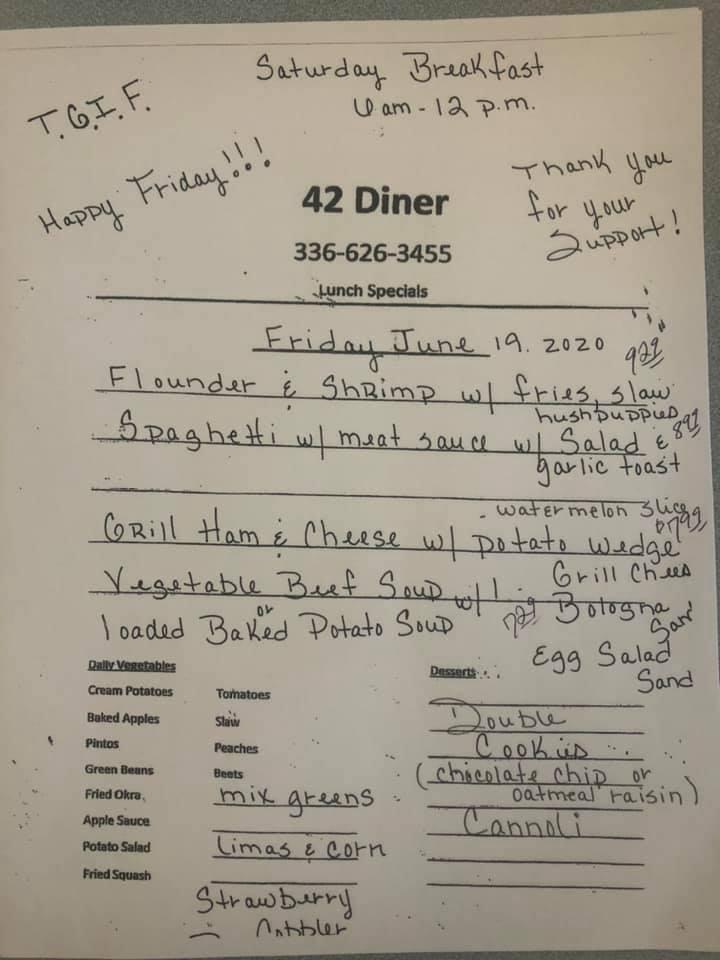 Saturday Breakfast
6 am - 12 p.m.
T.G.I.F.
Happy Friday!!!
Thank you
for your
Support!
42 Diner
336-626-3455
Lunch Specials
Friday June 19. 2020
Flounder & Shrimp w/ fries, slaw 9.29
hushpuppies
Spaghetti w/ meat sauce w/ Salad & 8.99
garlic toast
watermelon slice
Grill Ham & Cheese w/ potato wedge 7.99
Vegetable Beef Soup w/ 1. Grill Chees
or
loaded Baked Potato Soup 7.29 Bologna
Sand
Egg Salad
Sand
Daily Vegetables
Cream Potatoes
Baked Apples
Pintos
Green Beans
Fried Okra
Apple Sauce
Potato Salad
Fried Squash
Tomatoes
Slaw
Peaches
Beets
mix greens
Limas & Corn
Strawberry
Cobbler
Desserts
Double
Cookies
(chocolate chip or
oatmeal raisin)
Cannoli